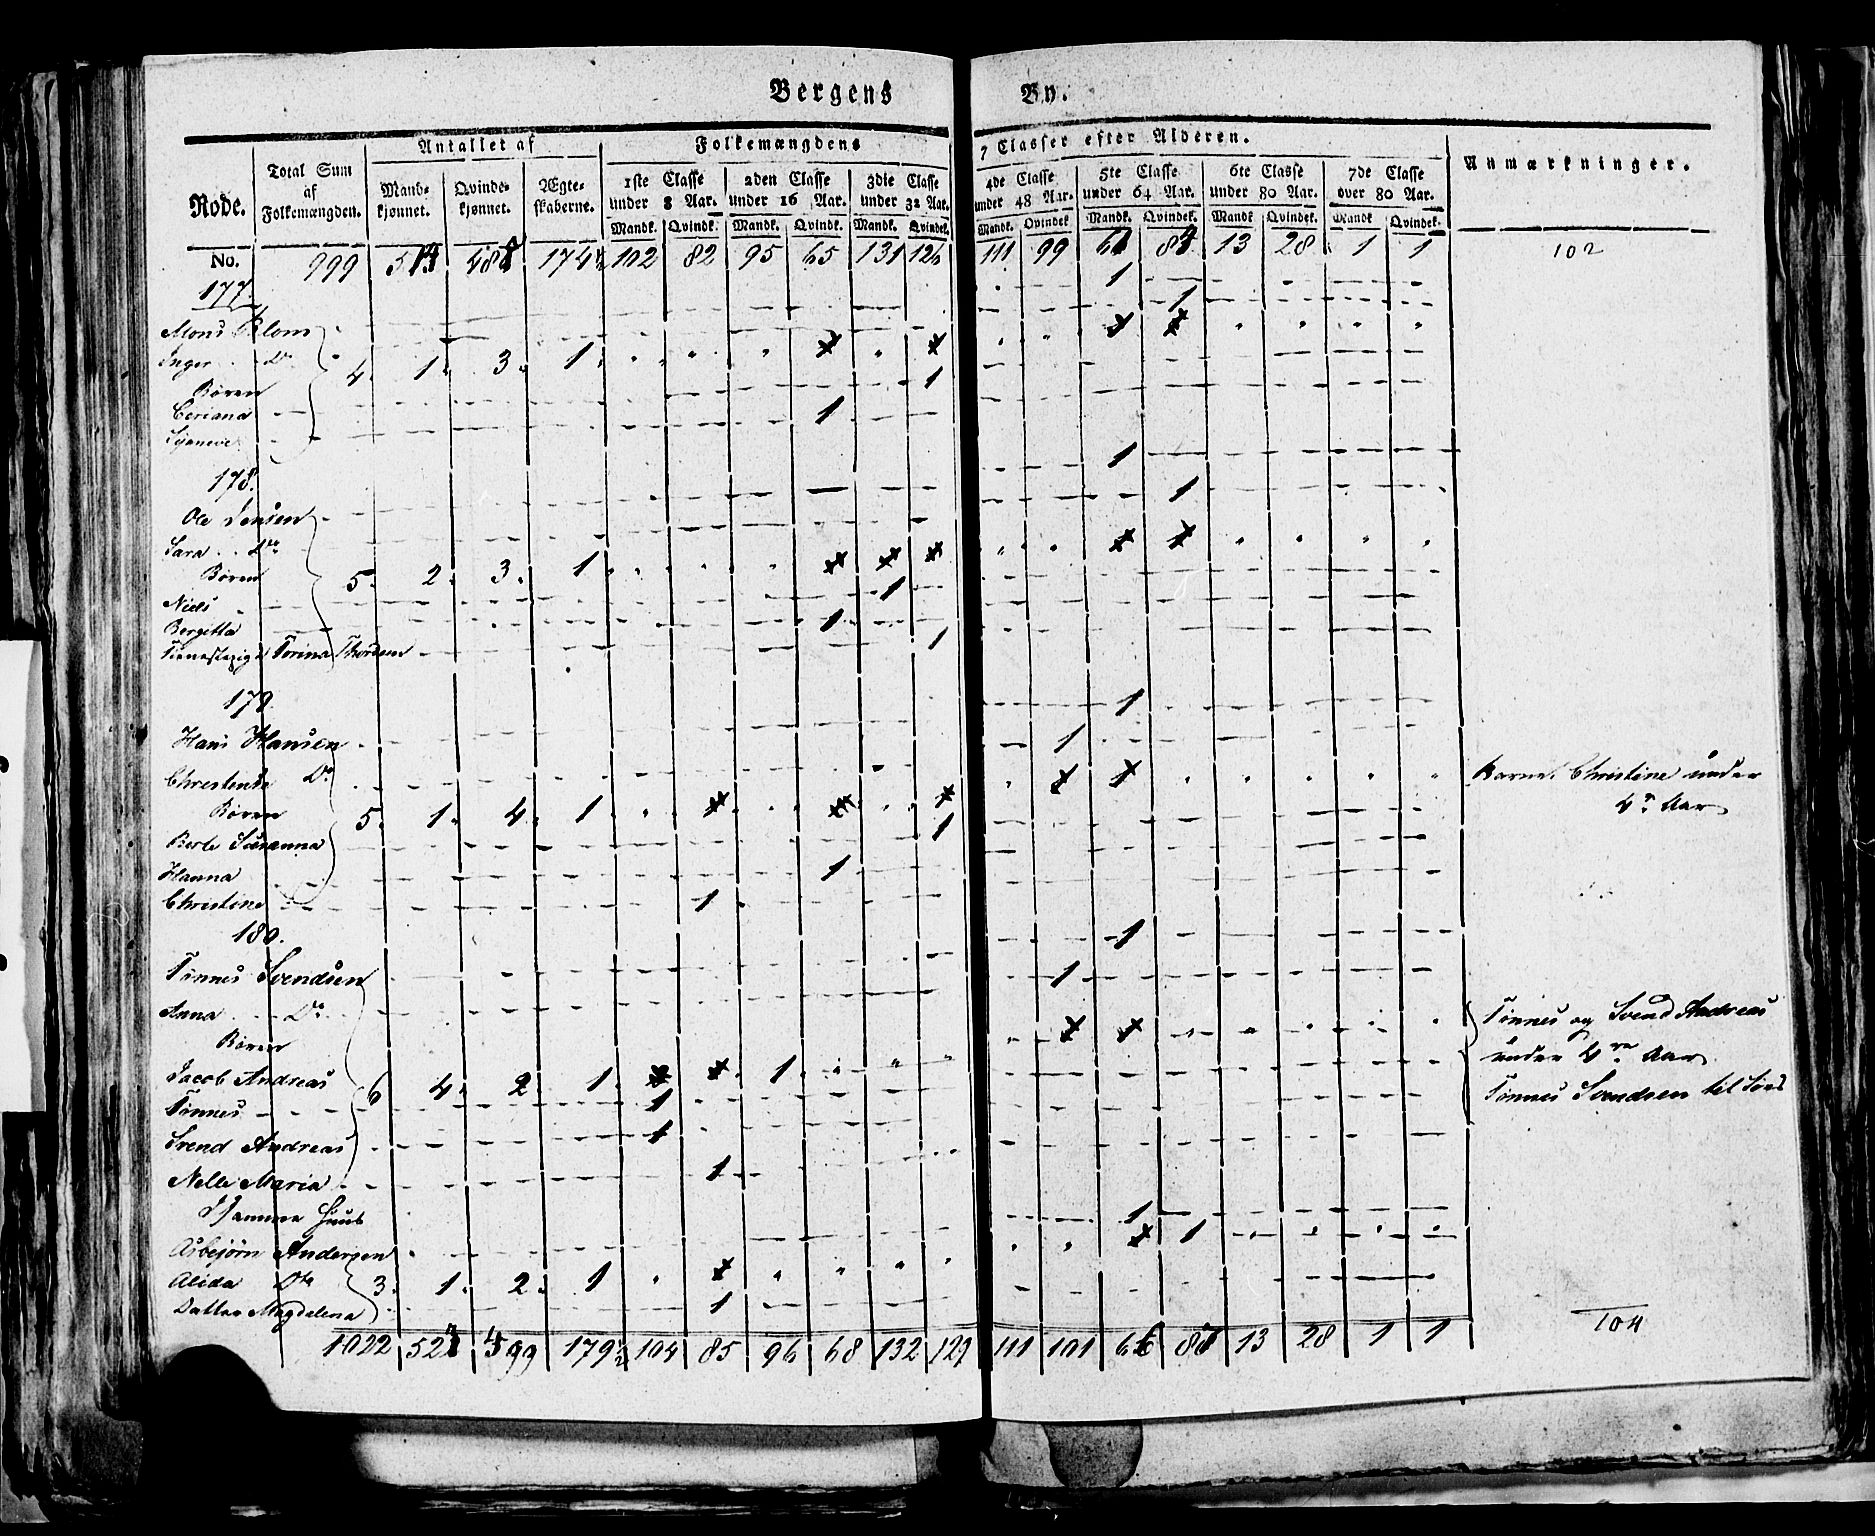 Bergens By.
Antallet af
Folkemængdens 7 Classer efter Alderen.
Anmærkninger.
Rode.
Total Sum af Folkemængden.
Mandkjønnet.
Qvindekjønnet.
Ægteskaberne.
1ste Classe under 8 Aar.
2den Classe under 16 Aar.
3die Classe under 32 Aar.
4de Classe under 48 Aar.
5te Classe under 64 Aar.
6te Classe under 80 Aar.
7de Classe over 80 Aar.
Mandk. Qvindk. Mandk. Qvindk. Mandk. Qvindek. Mandk. Qvindek Mandk. Qvindek. Mandk Qvindek. Mandk Qvindek.
No. 999 174 102 82 95 65 131 126 111 99 13 28 1 1 102
177.
Mons Blom 1
Inger Do 1
4 1 3 1
Børen
Ceriana 1
Synneve 1
178.
Ole Jensen 1
Sara Do 1
Børen 5 2 3 1
Niels 1
Bergitta 1
Tienestepige Torina Thorsen 1
179.
Hans Hansen 1
Chrestense Do 1
Børen 5 1 4 1
Berte Susanna 1
Hanna 1
Christine 1
Barnet Christine under
4 Aar
180.
Tønnes Svendsen 1
Anna Do 1
Børen
Jacob Andreas 6 4 2 1 1
Tønnes 1
Svend Andreas 1
Nelle Maria 1
Tønnes og Svend Andreas
under 4re Aar
Tønnes Svendsen til Søes
Samme Huus
Asbejørn Andersen 1
Alida Do 3 1 2 1 1
Datter Magdelena 1
1022 179 104 85 96 68 132 129 111 101 13 28 1 1 104